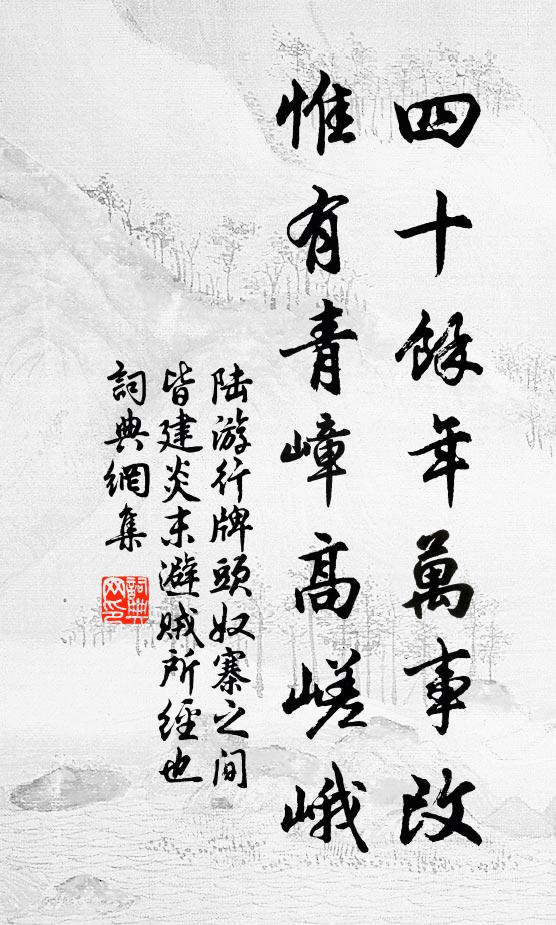 四十餘年萬事改
惟有青嶂高嵯峨
陆游行牌頭奴寨之间
皆建炎末避贼所經也
詞典網集
詞典文印